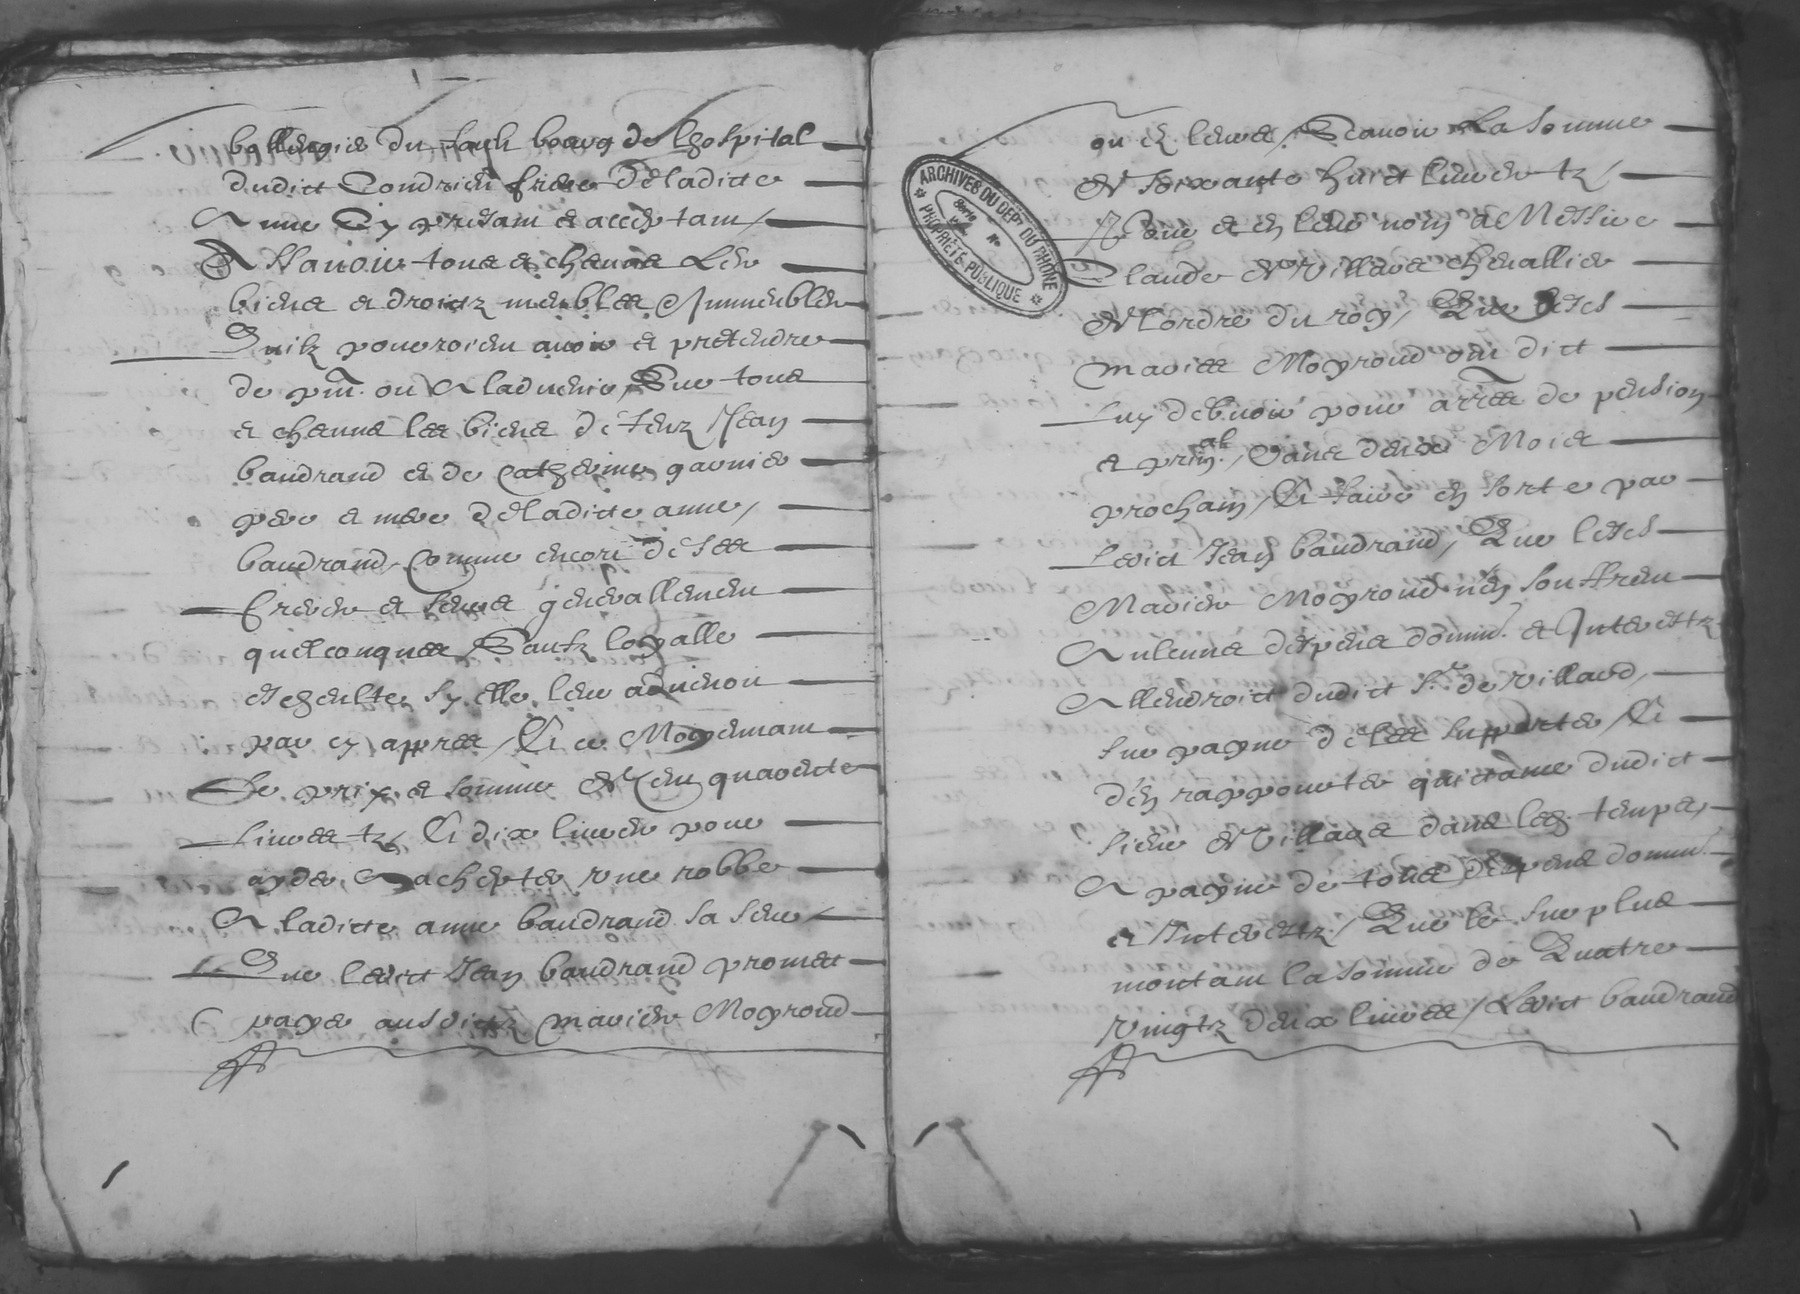 bollengier du faulx bourg de lhospital
dudict Condrieu frere de ladicte
Anne Cy present et acceptant /
Assavoir tous et chacuns Les
biens et droictz meubles Immeubles
Quilz pourroient avoir et pretendre
de pnt. ou A ladvenir, Sur tous
et chacuns les biens de feuz Jean
baudrand et de Catherine garnier
pere et mere de ladicte anne /
baudrand, Comme encore de ses
freres et seurs generallement
quelconques, Saufz loyalle
escheulte, sy elle leur advenoit
par cy appres / Et ce Moyennant
Le prix et somme de Cent quarente
Livres tz / Et dix livres pour
ayder A achepter une robbe
A ladicte anne baudrand sa seur /
Que ledict Jean baudrand promect
payer ausdictz mariez Moyroud
ou es leurs / Scavoir La somme
de soixante huict livres tz /
Pour et en leur nom a Messire
Claude de Villars chevallier
de lordre du roy, Que lesd
maries Moyroud ont dict
luy debvoir pour arres de pension
et prin.al, Dans deux Mois
prochain, Et faire en sorte par
Ledict Jean baudrand, Que lesd
Mariez Moyroud nen souffrent
Aulcuns despens domm. et Interestz
A llendroict dudict Sr. de Villard,
sur payne de les supporter / Et
den rapporter quictance dudict
sieur de Villars dans led. temps,
A payne de tous despens domm.
et Interestz / Que le surplus
montant la somme de Quatre
vingtz deux livres / Ledict baudrand
ARCHIVES DU DEPT DU RHONE
PROPRIÉTÉ PUBLIQUE
Série
No